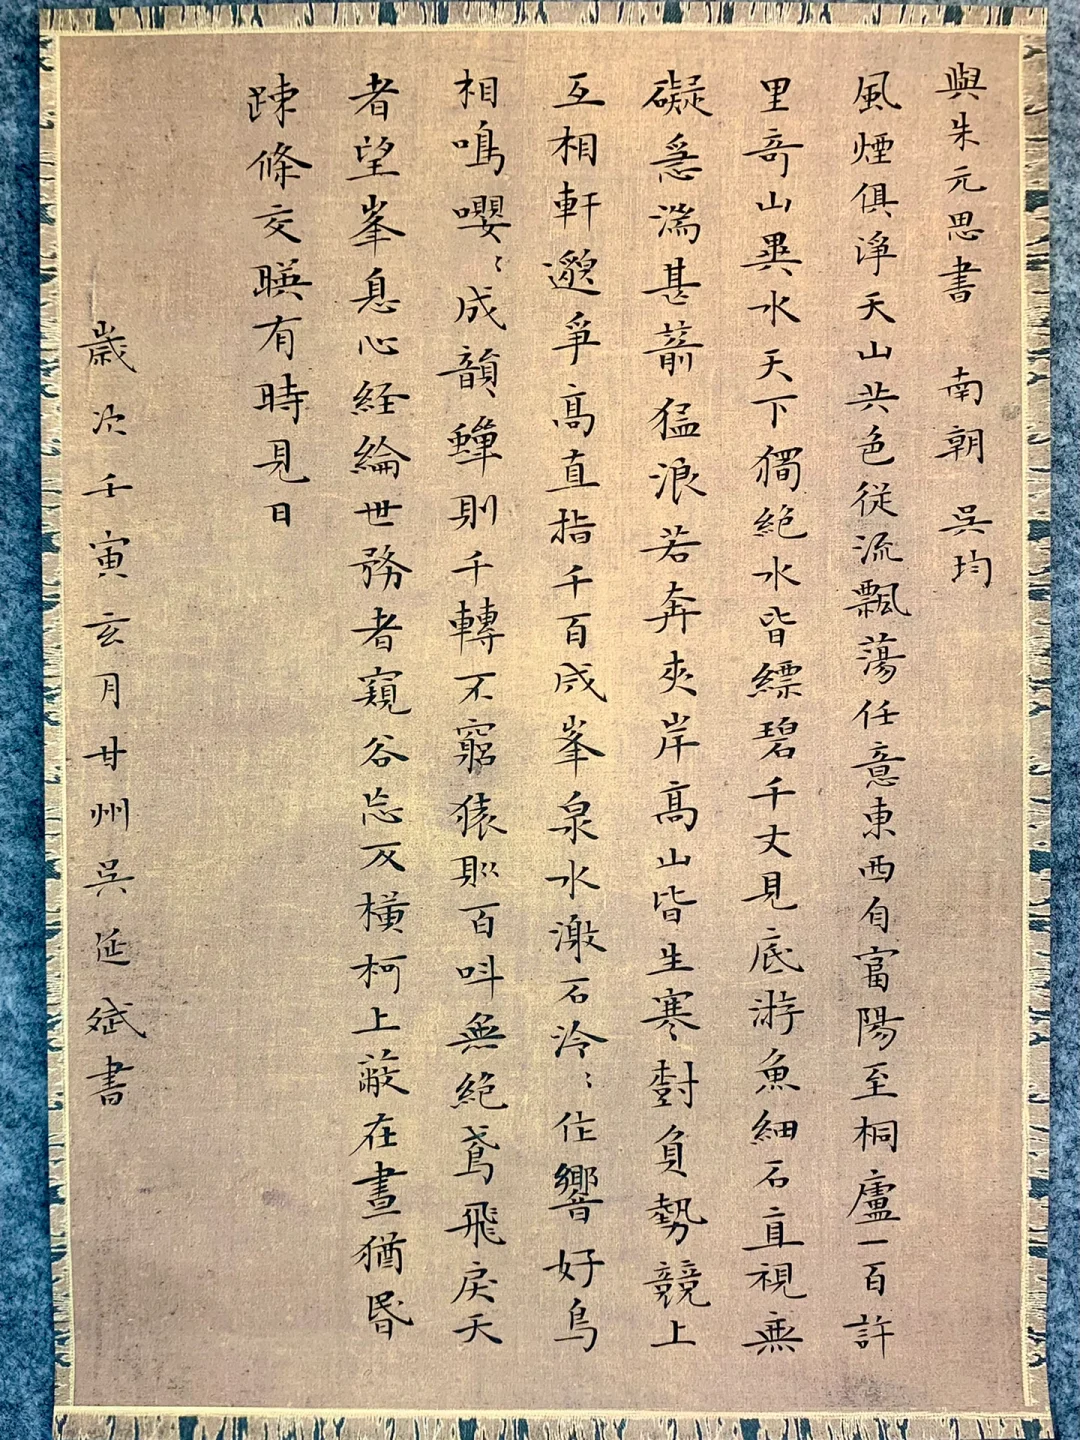 與朱元思書　南朝　吳均
風煙俱淨天山共色從流飄蕩任意東西自富陽至桐廬一百許
里奇山異水天下獨絕水皆縹碧千丈見底游魚細石直視無
礙急湍甚箭猛浪若奔夾岸高山皆生寒對負勢競上
互相軒邈爭高直指千百成峯泉水激石泠〻作響好鳥
相鳴嚶〻成韻蟬則千轉不窮猿則百叫無絕鳶飛戾天
者望峯息心経綸世務者窺谷忘反橫柯上蔽在晝猶昏
疎條交暎有時見日
歲次壬寅亥月甘州吳延斌書